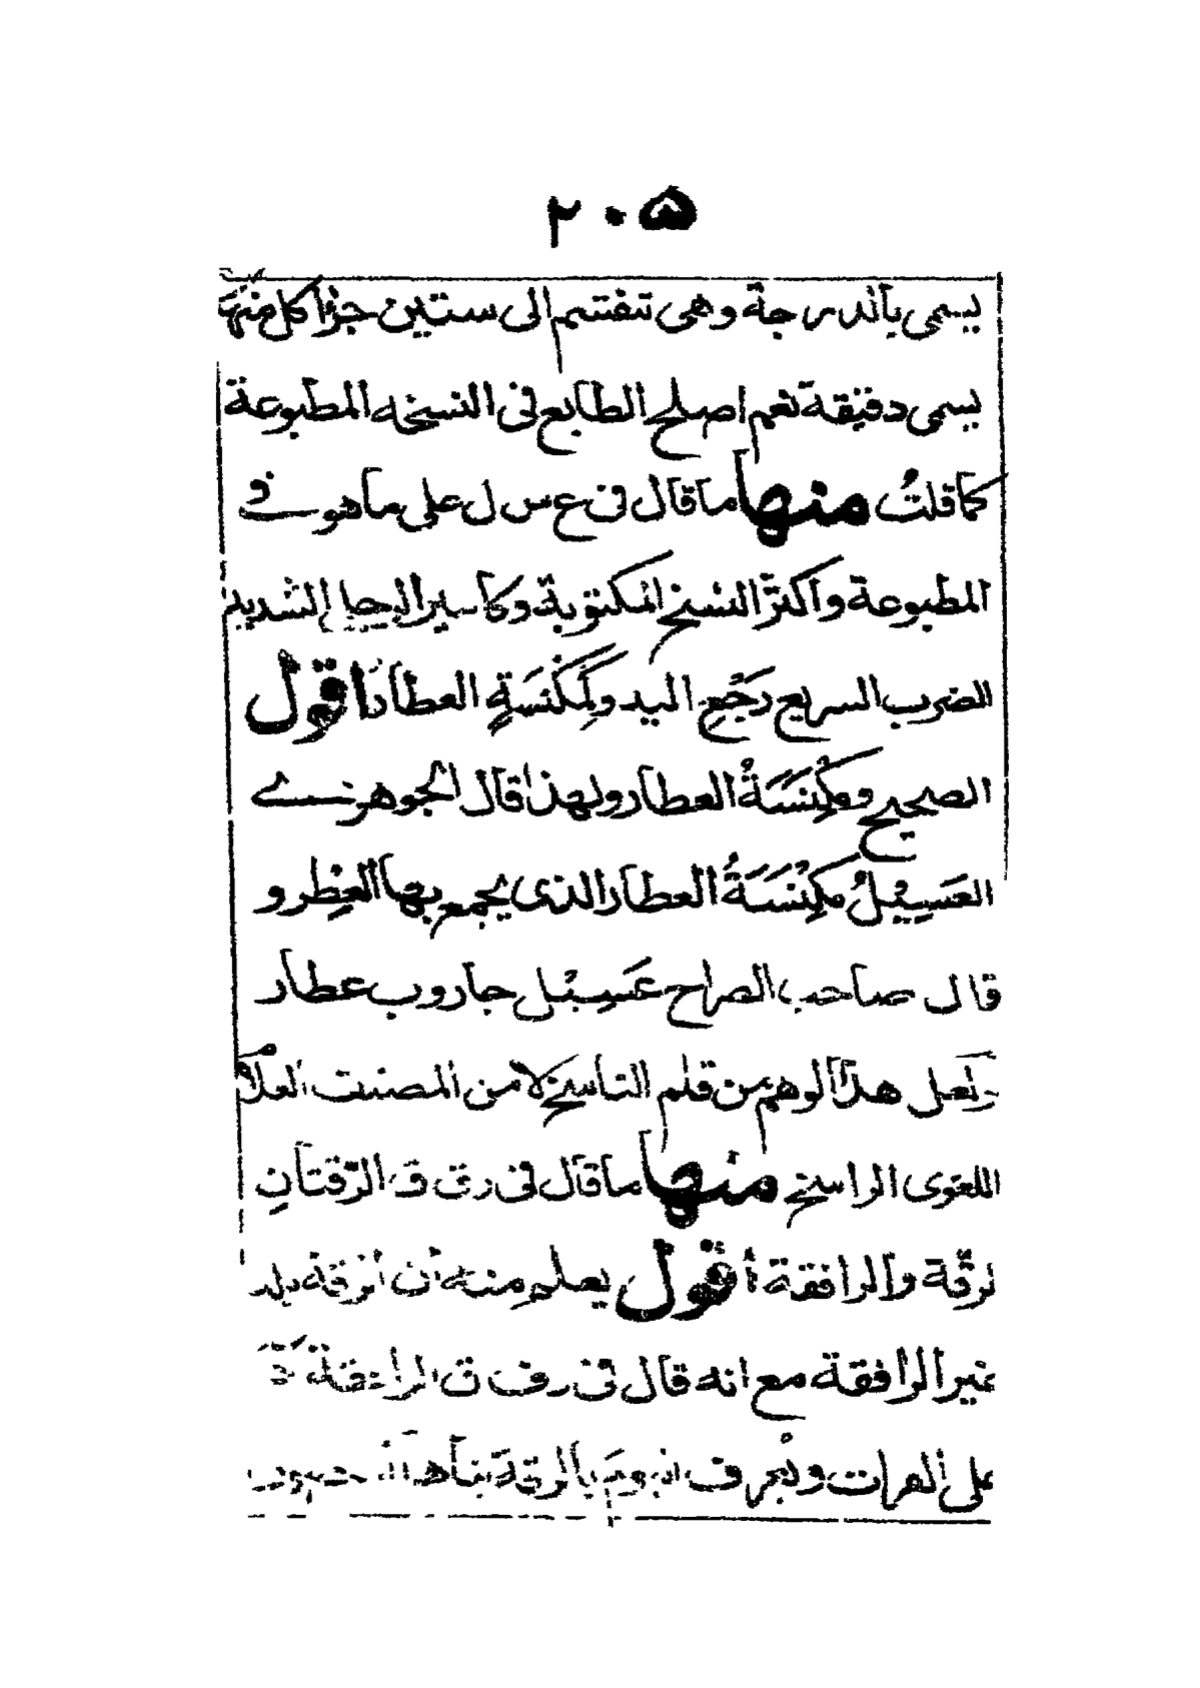 ٢٠۵
يسمى بالدرجة وهى تنقسم الى ستين جزأ كل منها
يسمى دقيقة نعم اصلح الطابع فى النسخه المطبوعة
كما قلتُ منها ما قال فى ع س ل على ما هو فى
المطبوعة واكثر النسخ المكتوبة وكأمير الرجل الشديد
الضرب السريع رَجْعِ اليد ولِمكْنَسَةِ العطار اقول
الصحيح ومِكْنَسَةُ العطار ولهذا قال الجوهرى
العَسِيْلُ مِكْنَسَةُ العطار الذى يجمع بها العِطْر و
قال صاحب الصراح عَسِيْل جاروب عطار
ولعل هذا الوهم من قلم الناسخ لا من المصنف العلامة
اللغوى الراسخ منها ما قال فى رق ق الرّقتانِ
الرقّة والرافقة أقول يعلم منه ان الرقة بلد
غير الرافقة مع انه قال فى رف ق الرافقة
على الفرات ويُعرف اليوم بالرقة بناها المنصور